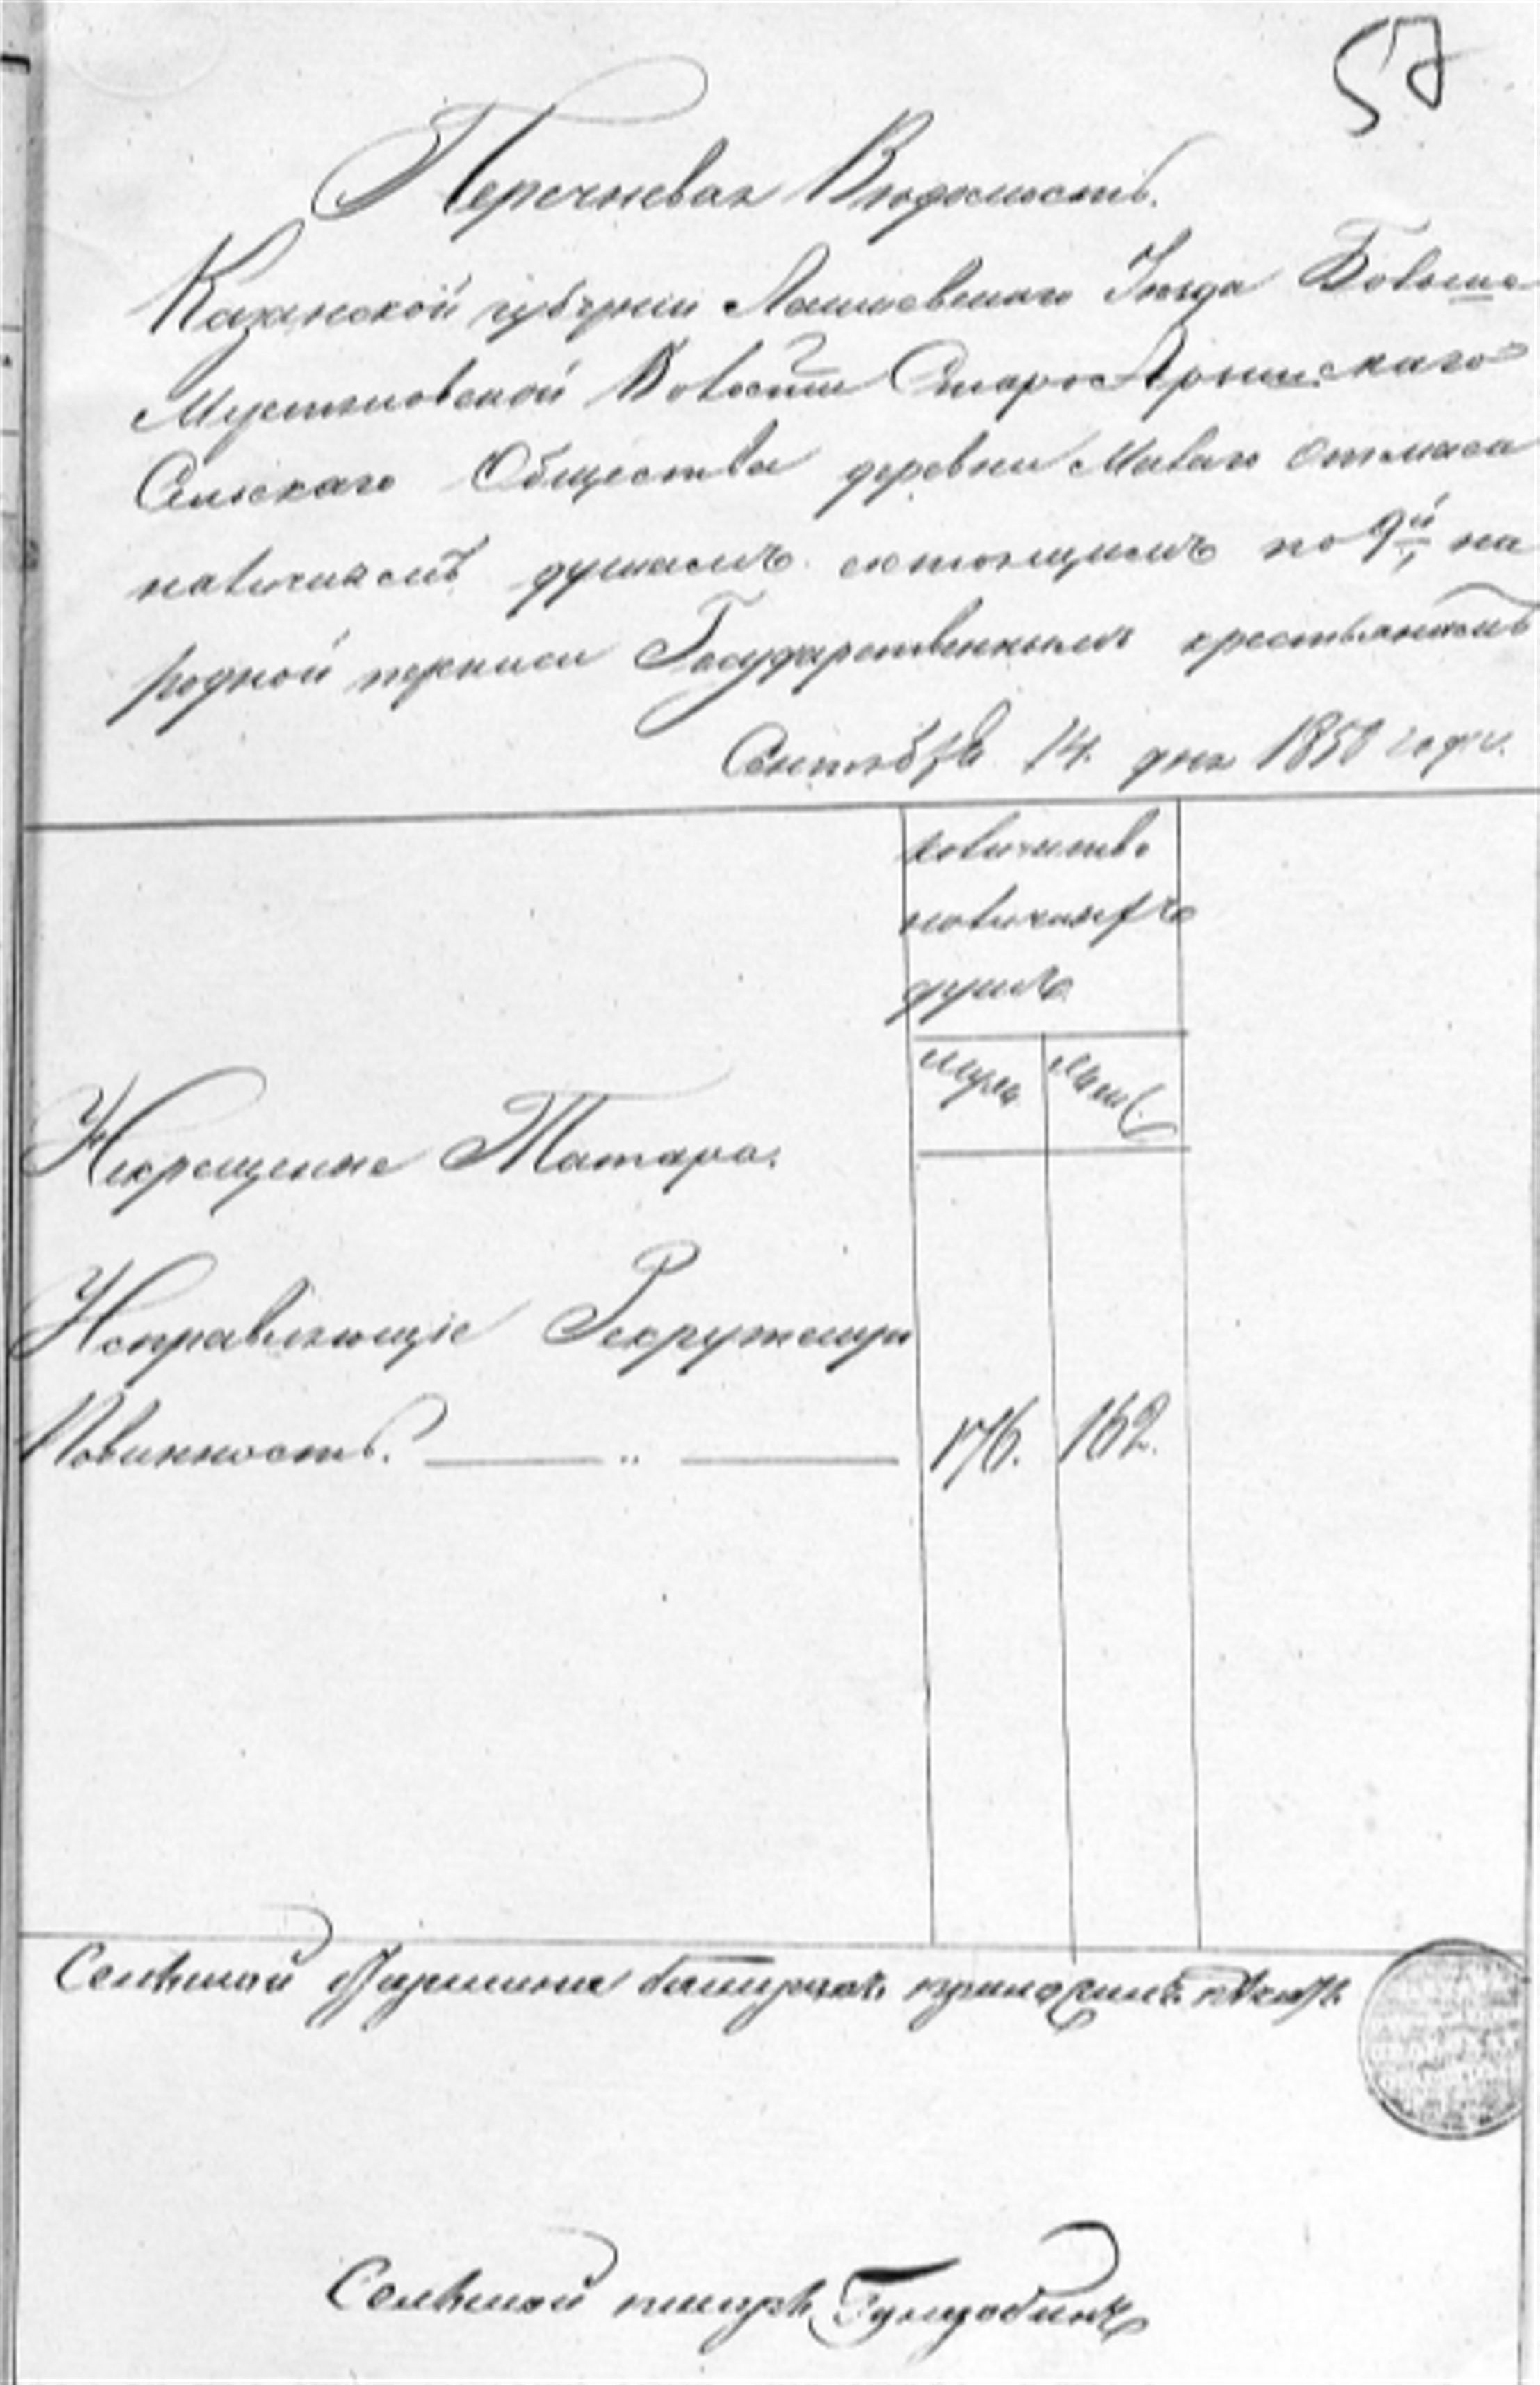 57
Перечневая Вѣдомость.
Казанской губерніи Лаишевскаго Уѣзда Больше
Волости Старо
Сельскаго Общества деревни Малаго Отмаса
наличнымъ душамъ состоящимъ по 9й на
родной переписи Государственнымъ крестьянамъ
Сентября 14. дня 1850 года.
количество
наличныхъ
душъ
муж. жен.
Некрещеные Татара.
Исправляющіе Рекрутскую
Повинность. 176. 162.
Сельской Старшина приложилъ печать
Сельской писарь